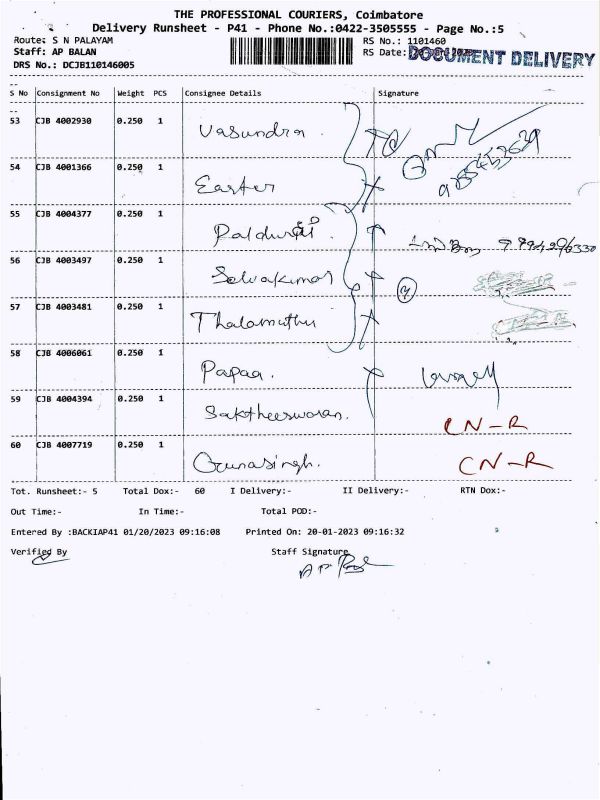 THE PROFESSIONAL COURIERS, Coimbatore
Delivery Runsheet - P41 - Phone No.:0422-3505555 - Page No.:5
Route: S N PALAYAM
RS No.: 1101460
Staff: AP BALAN
RS Date:
DOCUMENT DELIVERY
DRS No.: DCJB110146005
S No Consignment No Weight PCS Consignee Details Signature
53 CJB 4002930 0.250 1 Vasundra.
54 CJB 4001366 0.250 1 Easter
55 CJB 4004377 0.250 1
56 CJB 4003497 0.250 1 Selvakumar
57 CJB 4003481 0.250 1 Thalamuthu
58 CJB 4006061 0.250 1 Papaa.
59 CJB 4004394 0.250 1 Saktheeswaran. CN-R
60 CJB 4007719 0.250 1 Gunasingh. CN-R
Tot. Runsheet:- 5 Total Dox:- 60 I Delivery:- II Delivery:- RTN Dox:-
Out Time:- In Time:- Total POD:-
Entered By :BACKIAP41 01/20/2023 09:16:08 Printed On: 20-01-2023 09:16:32
Verified By Staff Signature